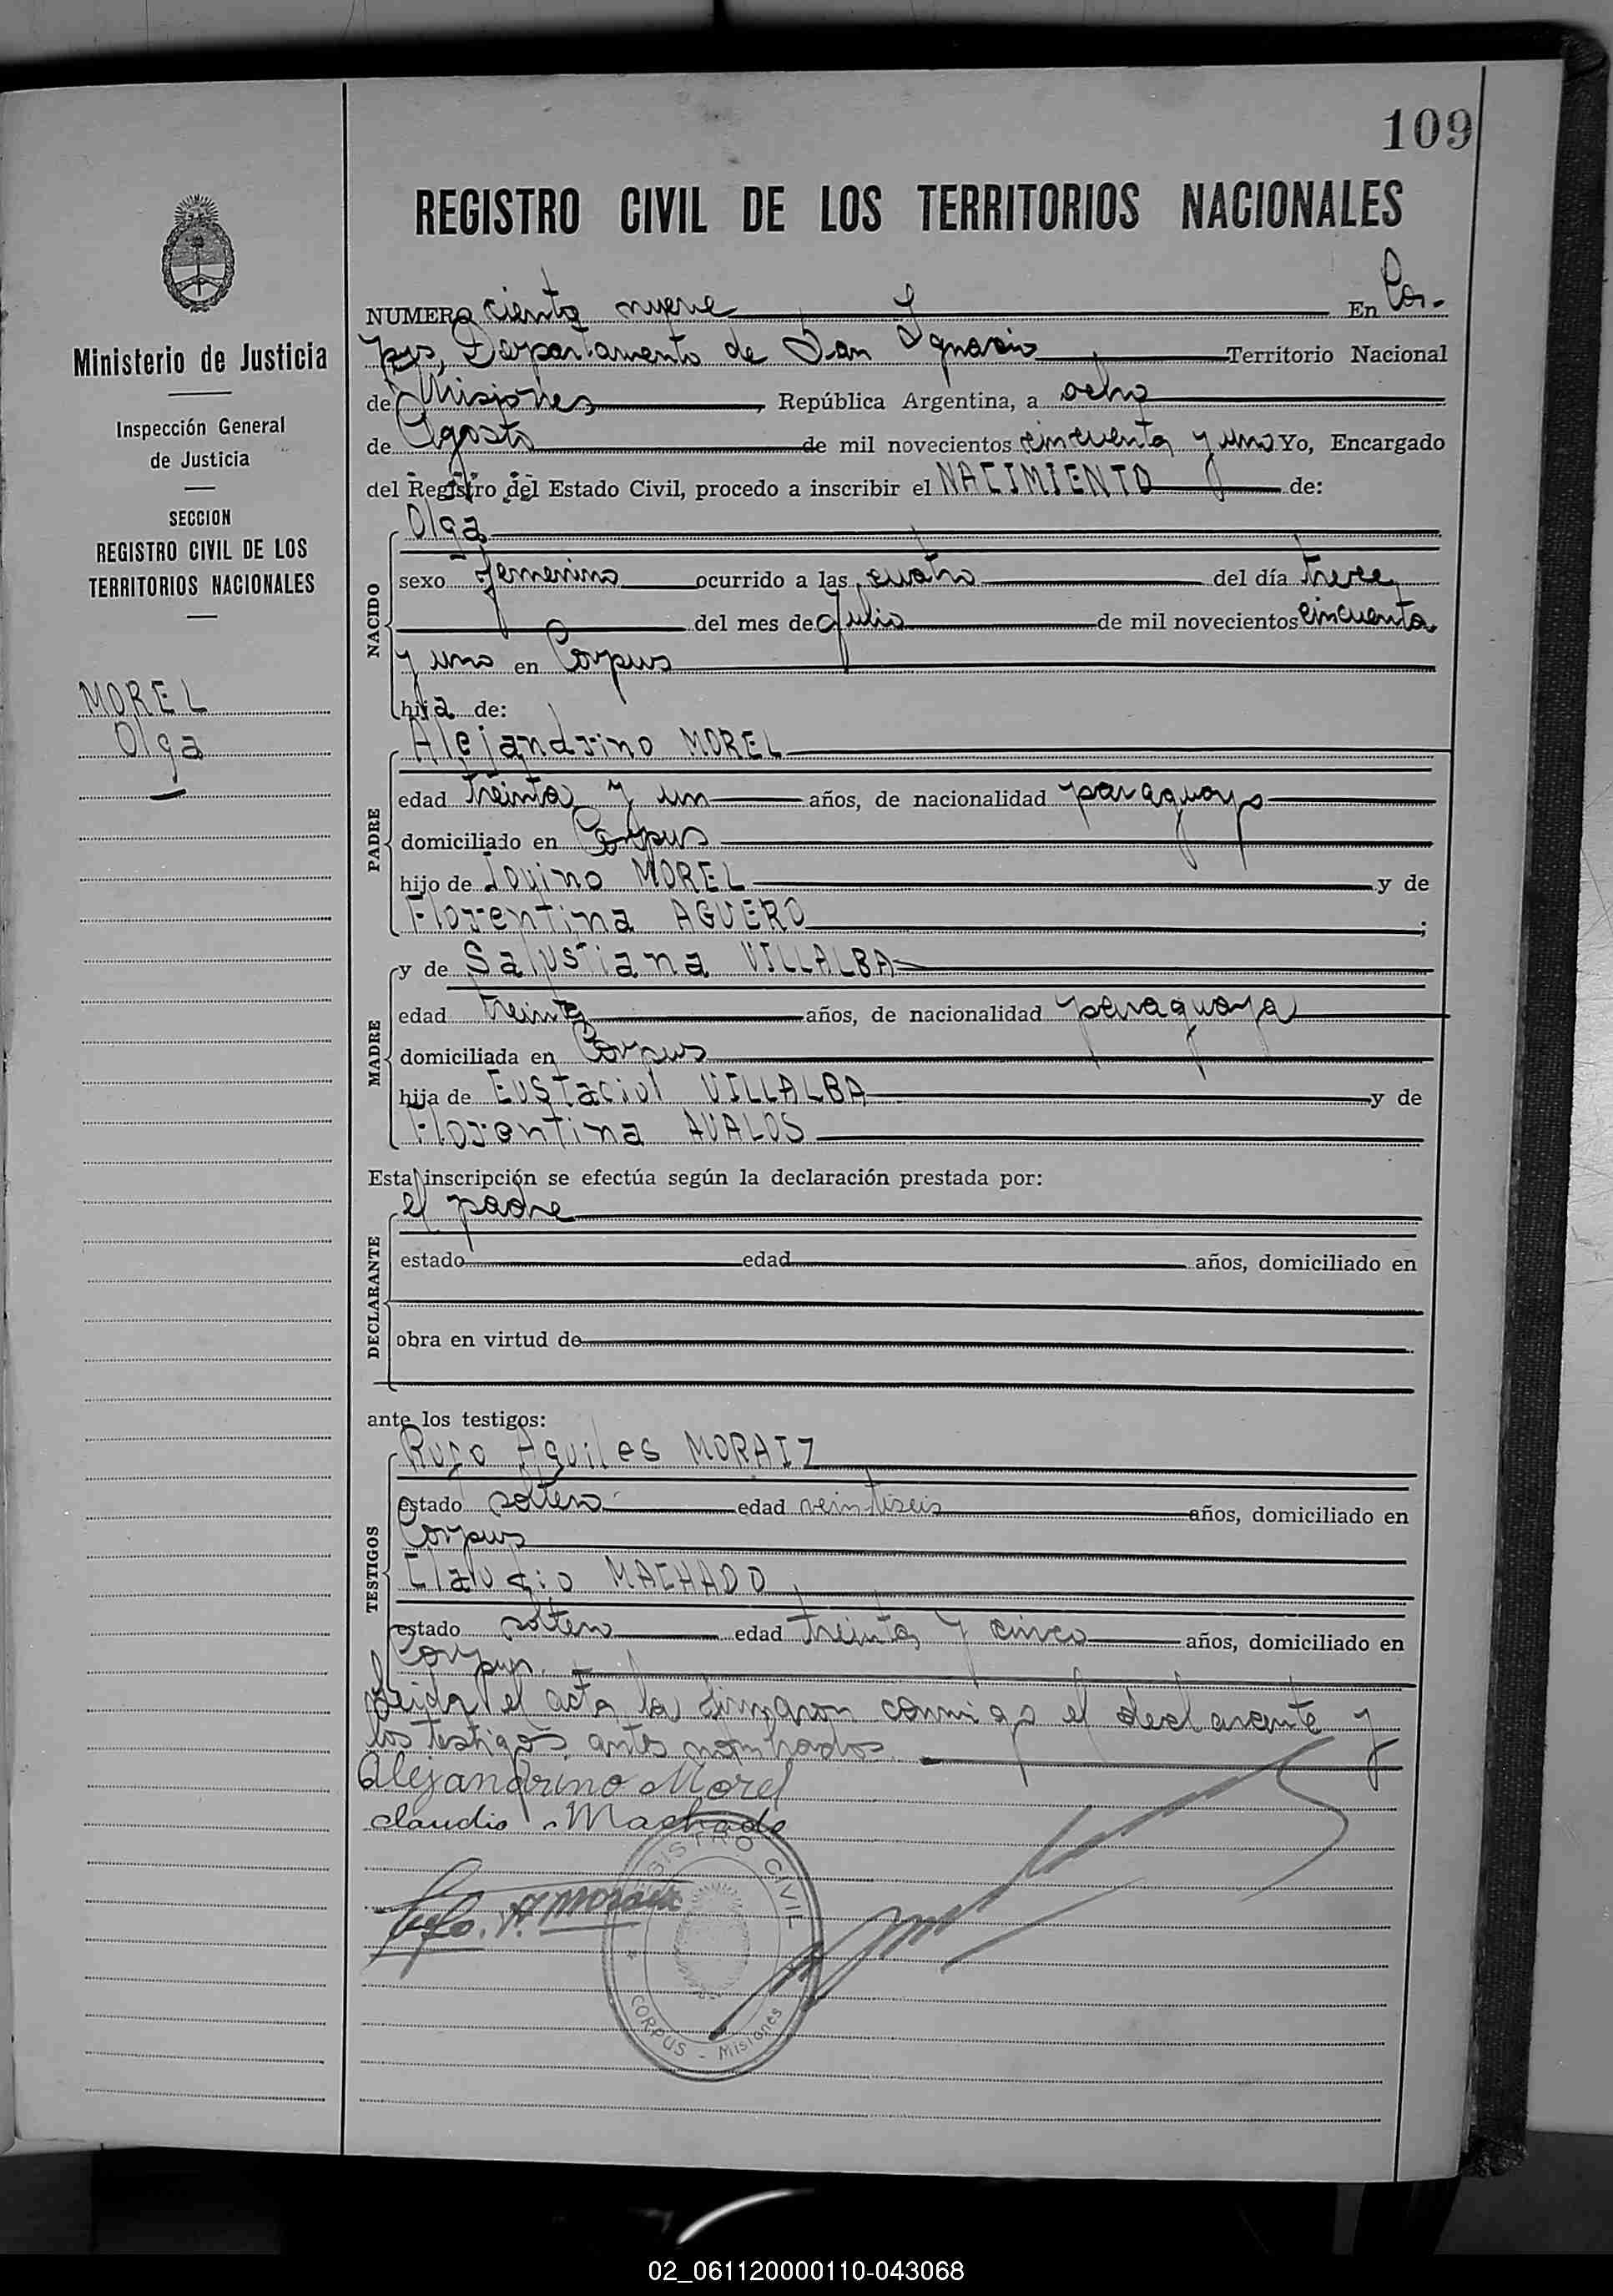 109
REGISTRO CIVIL DE LOS TERRITORIOS NACIONALES
Ministerio de Justicia
Inspección General
de Justicia
SECCION
REGISTRO CIVIL DE LOS
TERRITORIOS NACIONALES
MOREL
Olga
NUMERO ciento nueve En Cor-
pus, Departamento de San Ignacio Territorio Nacional
de Misiones, República Argentina, a ocho
de Agosto de mil novecientos cincuenta y uno Yo, Encargado
del Registro del Estado Civil, procedo a inscribir el NACIMIENTO de:
NACIDO
Olga
sexo femenino ocurrido a las cuatro del día trece
del mes de Julio de mil novecientos cincuenta
y uno en Corpus
hija de:
PADRE
Alejandrino MOREL
edad treinta y un años, de nacionalidad paraguayo
domiciliado en Corpus
hijo de Jovino MOREL y de
Florentina AGUERO;
MADRE
y de Salustiana VILLALBA
edad treinta años, de nacionalidad paraguaya
domiciliada en Corpus
hija de VILLALBA y de
Florentina AVALOS
Esta inscripción se efectúa según la declaración prestada por:
DECLARANTE
el padre
estado edad años, domiciliado en
obra en virtud de
ante los testigos:
TESTIGOS
Rufo Aquiles MORAIZ
estado soltero edad veintiseis años, domiciliado en
Corpus
Claudio MACHADO
estado soltero edad treinta y cinco años, domiciliado en
Corpus.
Leida el acta la firmaron conmigo el declarante y
los testigos antes nombrados.
Alejandrino Morel
claudio Machado
Rufo. A. Moraiz
REGISTRO CIVIL
CORPUS - Misiones
02_061120000110-043068